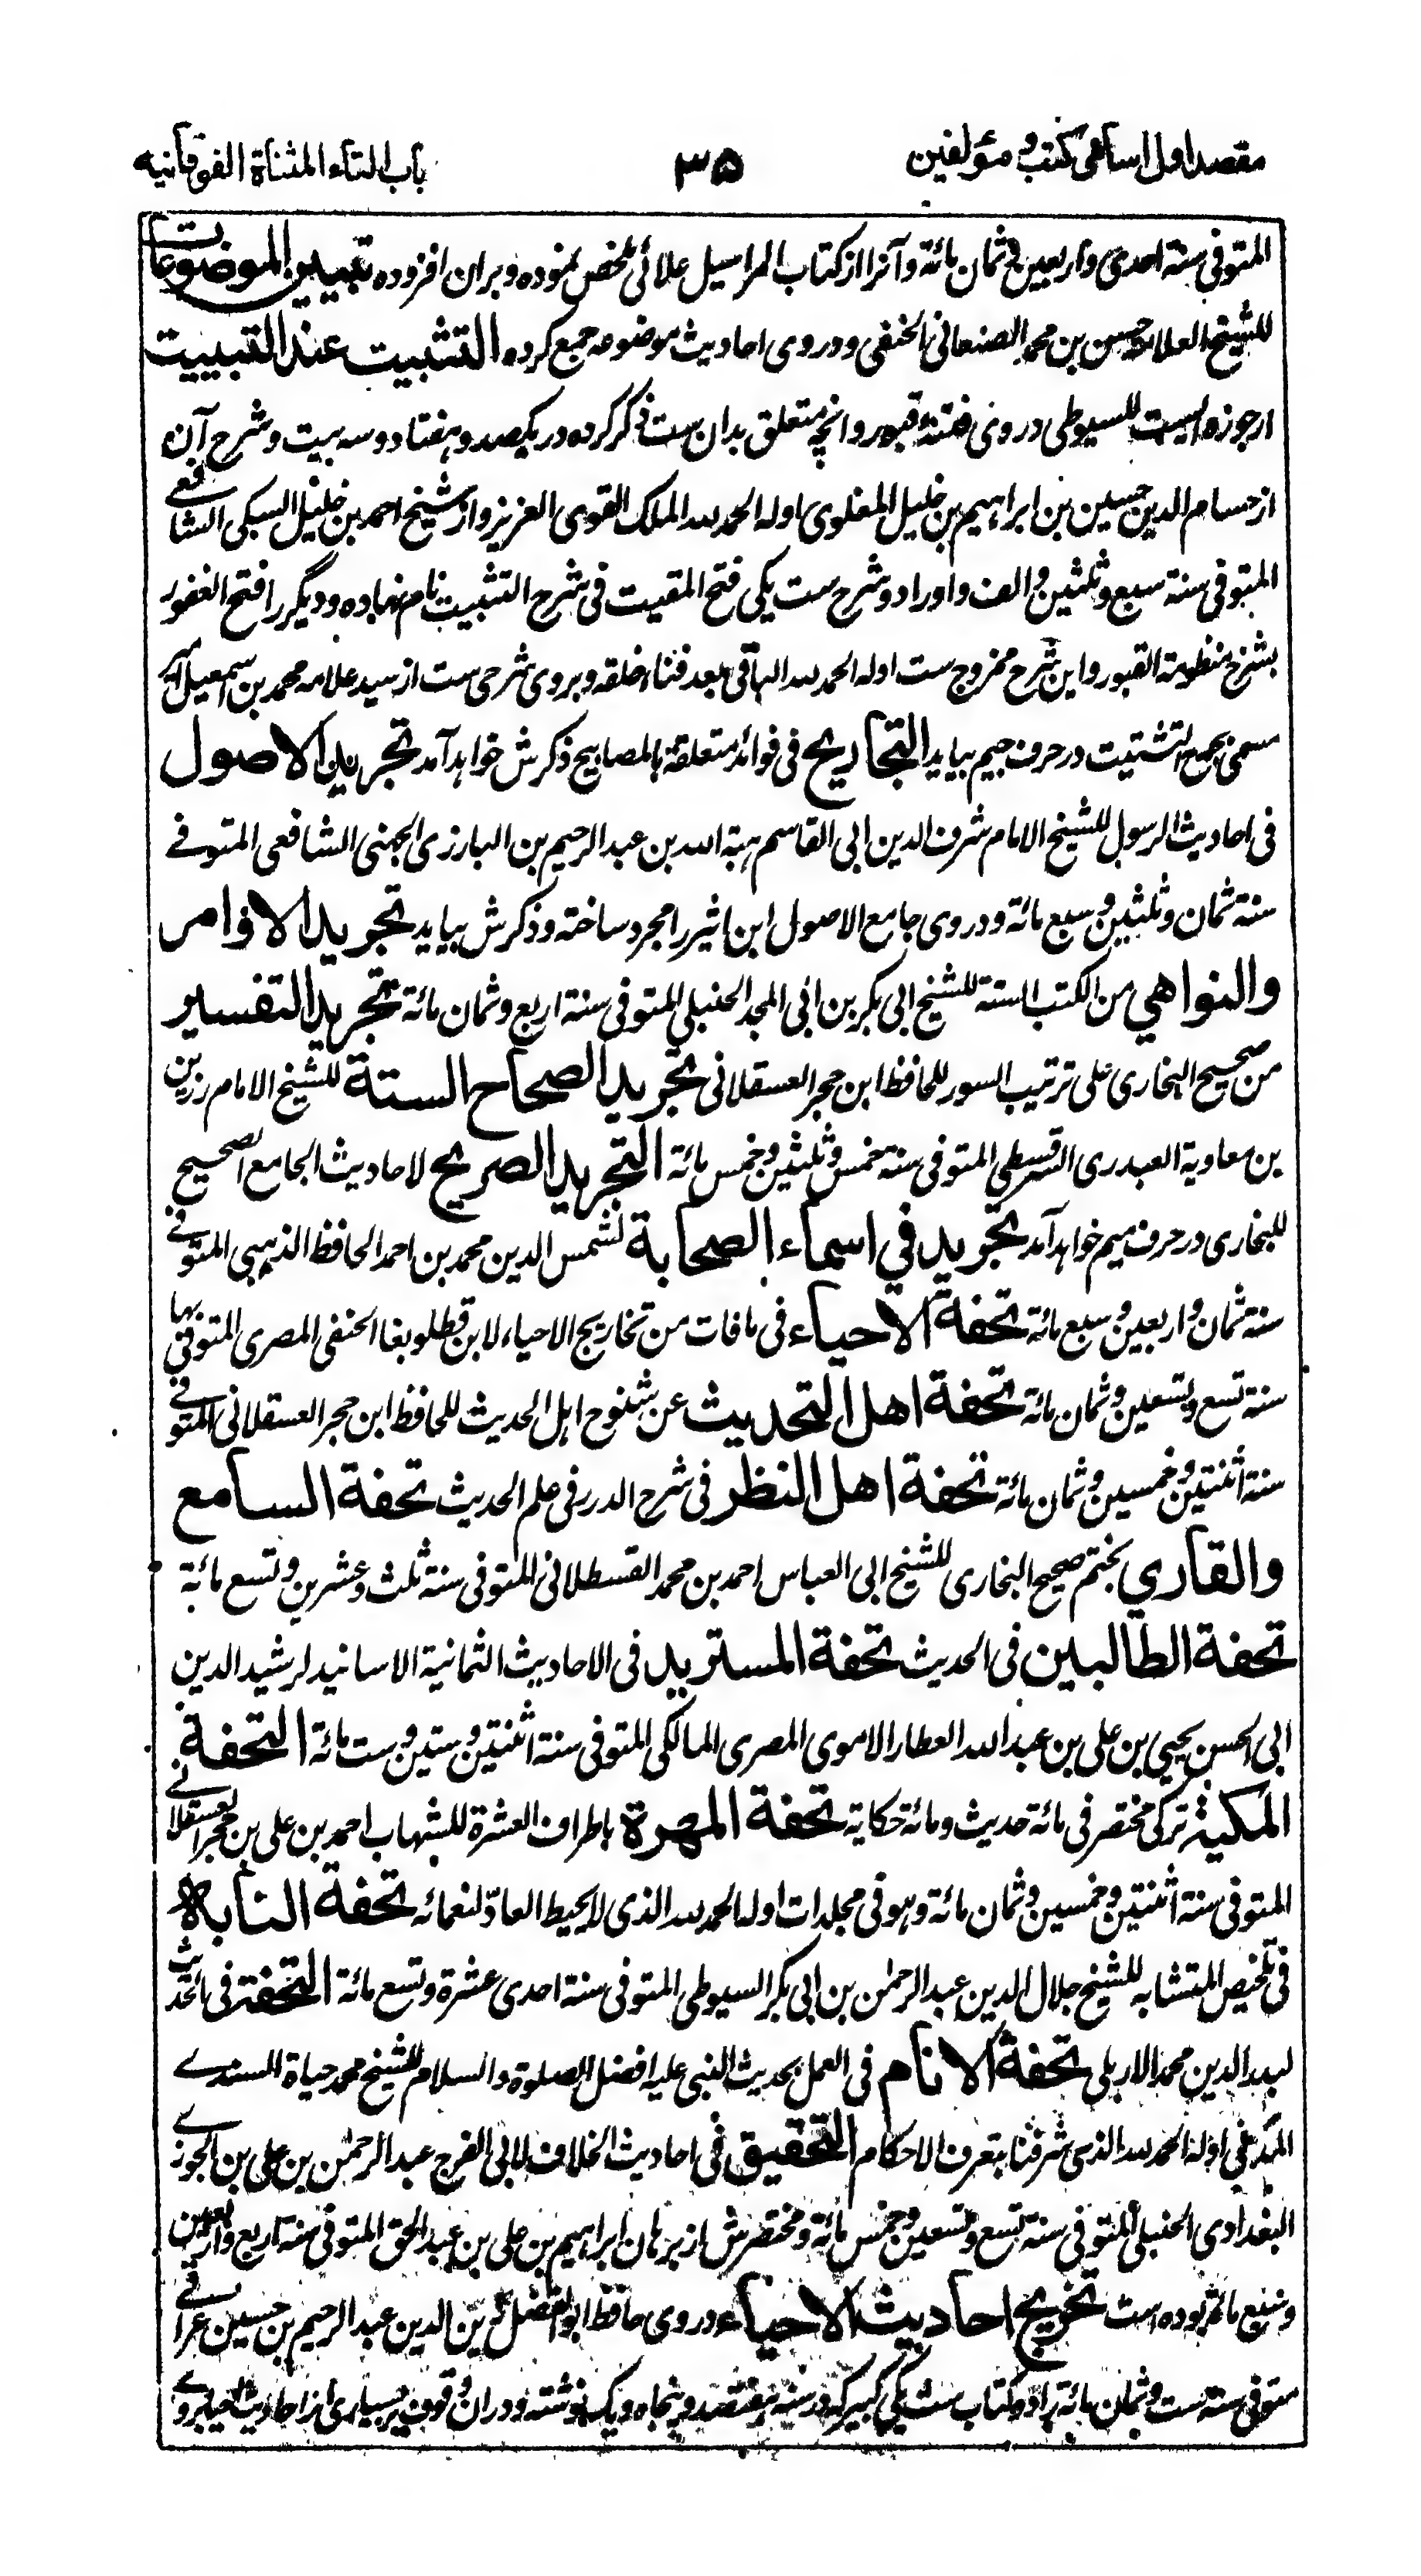 مقصد اول اسامی کتب و مؤلفین
۳۵
باب التاء المثناة الفوقانیه
المتوفی سنة احدی واربعین و ثمان مائة وآنرا از کتاب المراسیل علائی ملخص نموده و بران افزوده تبیین الموضوعات
للشیخ العلامة حسن بن محمد الصنعانی الحنفی و دروی احادیث موضوعه جمع کرده التثبیت عند التبییت
ارجوزه ایست للسیوطی دروی فتنهٔ قبور وانچه متعلق بدان ست ذکر کرده در یکصد و هفتاد و سه بیت و شرح آن
از حسام الدین حسین بن ابراهیم بن خلیل المغلوی اوله الحمد لله الملک القوی العزیز واز شیخ احمد بن خلیل السبکی الشافعی
المتوفی سنة سبع و ثلثین و الف و اورا دو شرح ست یکی فتح المقیت فی شرح التثبیت نام نهاده و دیگر را فتح الغفور
بشرح منظومة القبور و این شرح ممزوج ست اوله الحمد لله الباقی بعد فناء خلقه و بروی شرحی ست از سید علامه محمد بن اسمعیل الامیر
مسمی بجمع التشتیت در حرف جیم بیاید التجاریح فی فوائد متعلقة بالمصابیح ذکرش خواهد آمد تجرید الاصول
فی احادیث الرسول للشیخ الامام شرف الدین ابی القاسم هبة الله بن عبد الرحیم بن البارزی الجهنی الشافعی المتوفی
سنة ثمان و ثلثین و سبع مائة و دروی جامع الاصول ابن اثیر را مجرد ساخته و ذکرش بیاید تجرید الاوامر
والنواهی من الکتب الستة للشیخ ابی بکر بن ابی المجد الحنبلی المتوفی سنة اربع و ثمان مائة تجرید التفسیر
من صحیح البخاری علی ترتیب السور للحافظ ابن حجر العسقلانی تجرید الصحاح الستة للشیخ الامام رزین
بن معاویة العبدری السرقسطی المتوفی سنة خمس و ثلثین و خمس مائة التجرید الصریح لاحادیث الجامع الصحیح
للبخاری در حرف میم خواهد آمد تجرید فی اسماء الصحابة لشمس الدین محمد بن احمد الحافظ الذهبی المتوفی
سنة ثمان و اربعین و سبع مائة تحفة الاحیاء فی ما فات من تخاریج الاحیاء لابن قطلوبغا الحنفی المصری المتوفی بها
سنة تسع و تسعین و ثمان مائة تحفة اهل التحدیث عن شیوخ اهل الحدیث للحافظ ابن حجر العسقلانی المتوفی
سنة اثنتین و خمسین و ثمان مائة تحفة اهل النظر فی شرح الدرر فی علم الحدیث تحفة السامع
والقاری بختم صحیح البخاری للشیخ ابی العباس احمد بن محمد القسطلانی المتوفی سنة ثلث و عشرین و تسع مائة
تحفة الطالبین فی الحدیث تحفة المستزید فی الاحادیث الثمانیة الاسانید لرشید الدین
ابی الحسن یحیی بن علی بن عبد الله العطار الاموی المصری المالکی المتوفی سنة اثنتین و ستین و ست مائة التحفة
المکیة ترکی مختصر فی مائة حدیث و مائة حکایة تحفة المهرة باطراف العشرة للشهاب احمد بن علی بن حجر العسقلانی
المتوفی سنة اثنتین و خمسین و ثمان مائة وهو فی مجلدات اوله الحمد لله الذی لا یحیط العاد لنعمائه تحفة النابه
فی تلخیص المتشابه للشیخ جلال الدین عبد الرحمن بن ابی بکر السیوطی المتوفی سنة احدی عشرة و تسع مائة التحفة فی
لبدر الدین محمد الاربلی تحفة الانام فی العمل بحدیث النبی علیه افضل الصلوة والسلام للشیخ محمد حیاة السندی
المدنی اوله الحمد لله الذی شرفنا بتعرف الاحکام التحقیق فی احادیث الخلاف لابی الفرج عبد الرحمن بن علی بن الجوزی
البغدادی الحنبلی المتوفی سنة تسع و تسعین و خمس مائة و مختصرش از برهان ابراهیم بن علی بن عبد الحق المتوفی سنة اربع و اربعین
و سبع مائة بوده است تخریج احادیث الاحیاء دروی حافظ ابوالفضل زین الدین عبد الرحیم بن حسین عراقی
متوفی سنة ست و ثمان مائة را دو کتاب ست یکی کبیر که در سنه هفتصد و پنجاه و یک نوشته و دران وقوف بر بسیاری از احادیث احیا بروی